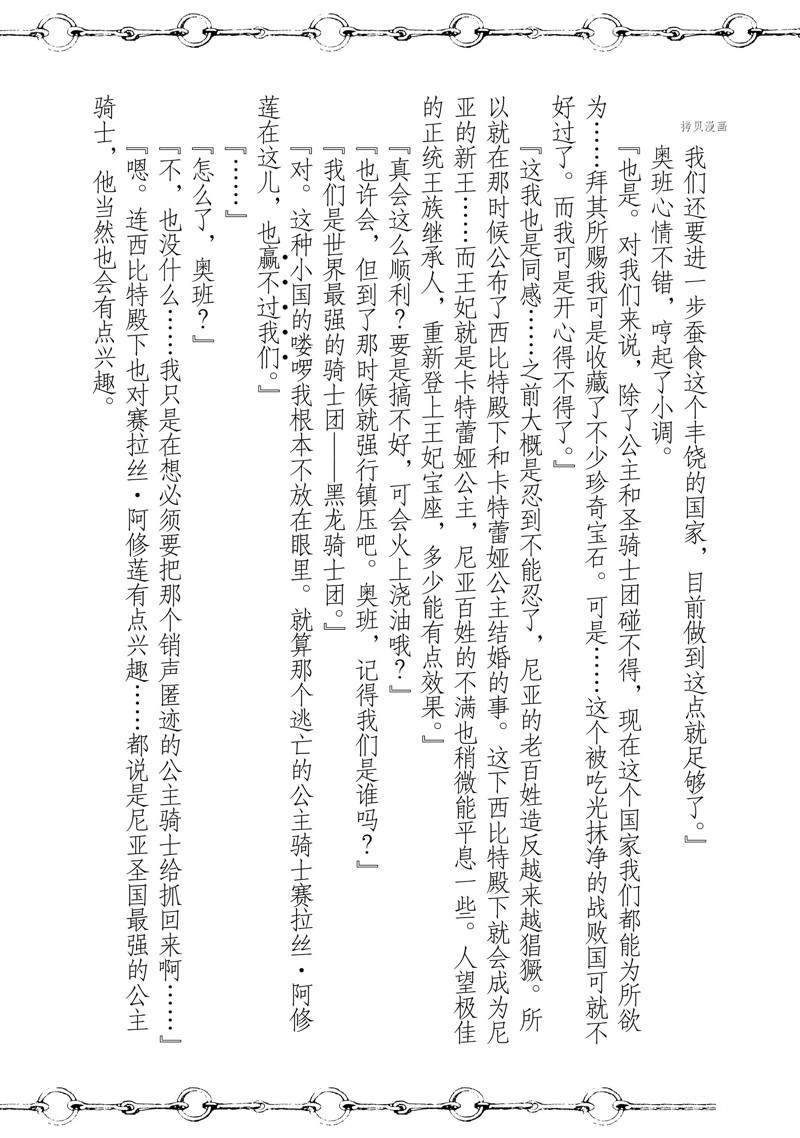 拷贝漫画
我们还要进一步蚕食这个丰饶的国家，目前做到这点就足够了。』
奥班心情不错，哼起了小调。
『也是。对我们来说，除了公主和圣骑士团碰不得，现在这个国家我们都能为所欲
为……拜其所赐我可是收藏了不少珍奇宝石。可是……这个被吃光抹净的战败国可就不
好过了。而我可是开心得不得了。』
『这我也是同感……之前大概是忍到不能忍了，尼亚的老百姓造反越来越猖獗。所
以就在那时候公布了西比特殿下和卡特蕾娅公主结婚的事。这下西比特殿下就会成为尼
亚的新王……而王妃就是卡特蕾娅公主，尼亚百姓的不满也稍微能平息一些。人望极佳
的正统王族继承人，重新登上王妃宝座，多少能有点效果。』
『真会这么顺利？要是搞不好，可会火上浇油哦？』
『也许会，但到了那时候就强行镇压吧。奥班，记得我们是谁吗？』
『我们是世界最强的骑士团——黑龙骑士团。』
『对。这种小国的喽啰我根本不放在眼里。就算那个逃亡的公主骑士赛拉丝·阿修
莲在这儿，也赢不过我们。』
『……』
『怎么了，奥班？』
『不，也没什么……我只是在想必须要把那个销声匿迹的公主骑士给抓回来啊……』
『嗯。连西比特殿下也对赛拉丝·阿修莲有点兴趣……都说是尼亚圣国最强的公主
骑士，他当然也会有点兴趣。